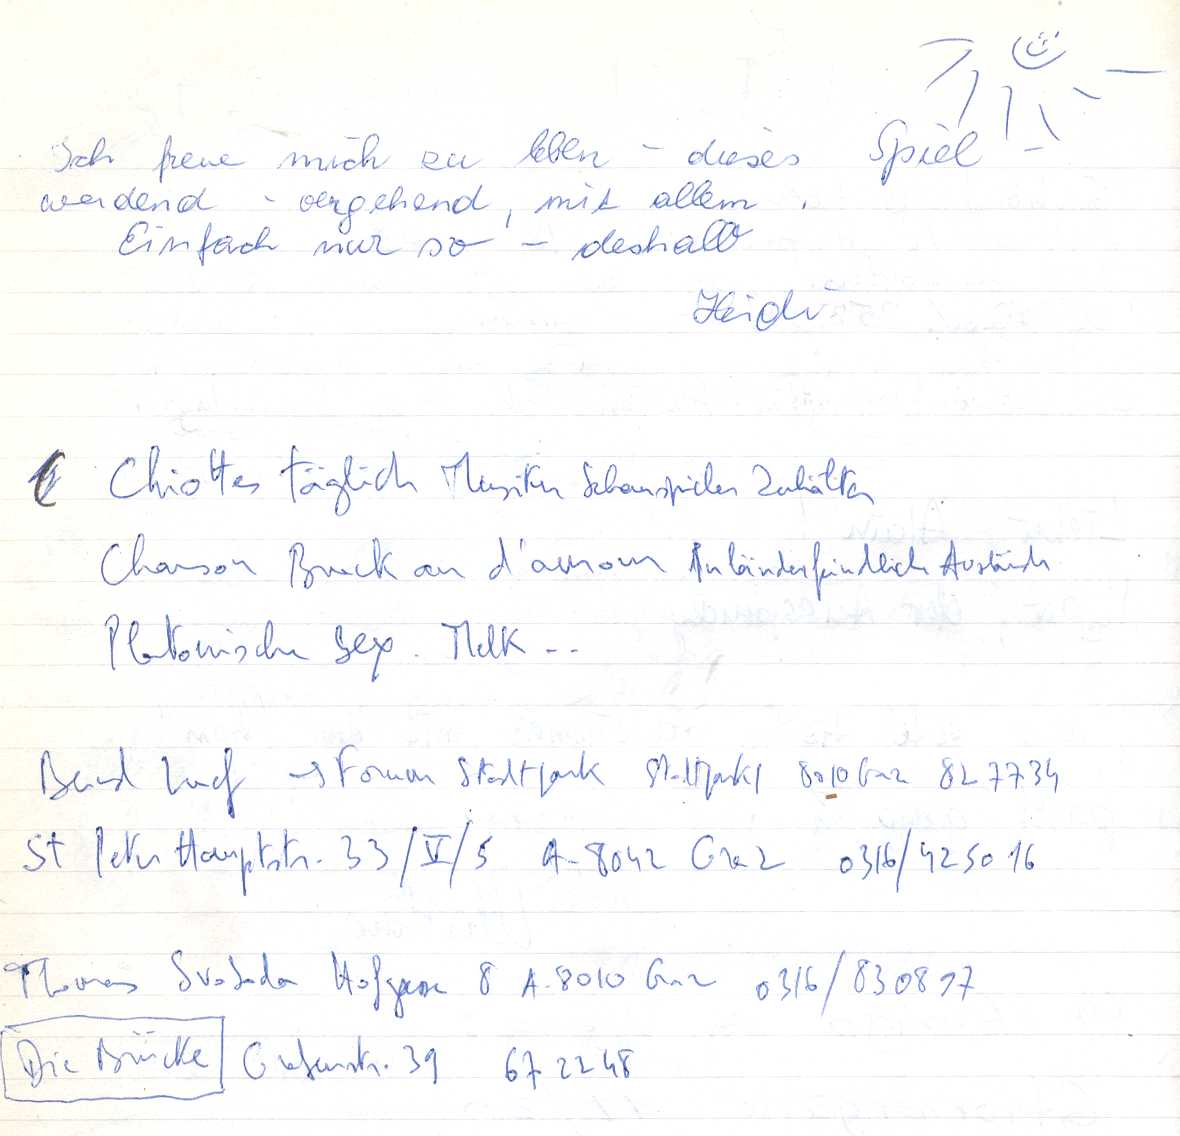 Ich freue mich zu leben – dieses Spiel –
werdend - vergehend, mit allem.
Einfach nur so – deshalb
Heidi
Chiottes täglich Musiker Schauspieler Zuhälter
Chanson Bruck an d'amour Inländerfeindliche Ausländer
Platonischer Sex. Melk --
Bernd → Forum Stadtpark Stadtpark 1 8010 Graz 827734
St Peter Hauptstr. 33/V/5 A-8042 Graz 0316/425016
Thomas Svoboda Hofgasse 8 A-8010 Graz 0316/830817
Die Brücke Grabenstr. 39 67 22 48